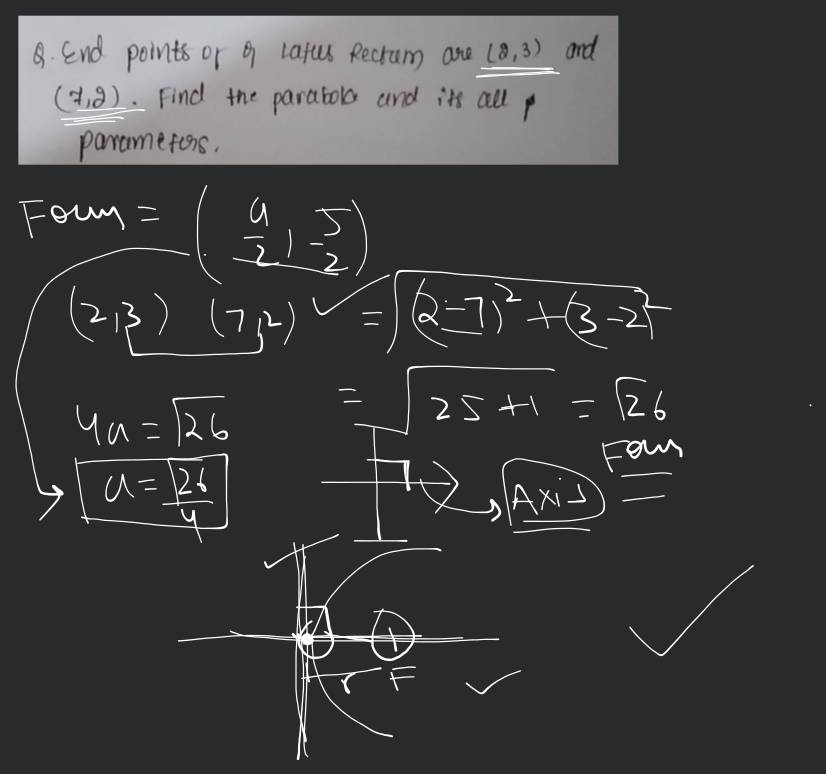 Q. End points of a Latus Rectum are (2,3) and
(7,2). Find the parabola and its all
parameters.
Focus = (9/2, 5/2)
(2,3) (7,2) = √(2-7)² + (3-2)²
= √25+1 = √26
4a = √26
Focus
a = √26/4
Axis
r F